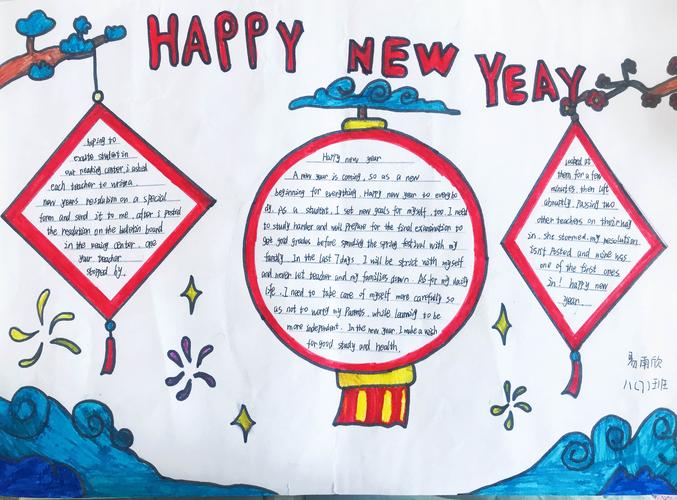 HAPPY NEW YEAY
hoping to
excite student in
our reading center, i asked
each teacher to write a
new years resolution on a special
form and send it to me. after i posted
the resolution on the bulletin bound
in the reading center. one
your teacher
stoped by.
Happy new year
A new year is coming, so as a new
beginning for everything. Happy new year to everybo
dy. As a student, I set new goals for myself, too. I need
to study harder and well prepare for the final examination to
get good grades before spending the spring festival with my
family. In the last 7 days. I will be strict with myself
and never let teacher and my families down. As for my daily
life, I need to take care of myself more carefully so
as not to worry my Parents. while learning to be
more independent. In the new year, I make a wish
for good study and health.
looked at
them for a few
minutes, then left
abruptly. Passing two
other teachers on their way
in. she stormed. my resolution
isn't posted and mine was
one of the first ones
in! happy new
year.
易雨欣
八(7)班